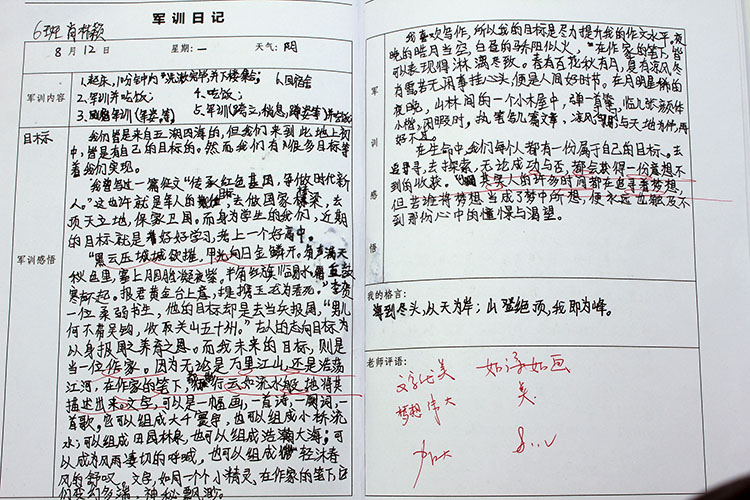 军训日记
6班
8月12日 星期:一 天气:阴
军训内容
1.起床,10分钟内"洗漱完毕并下楼集合; 6.回宿舍
2.军训并吃饭; 4.吃饭;
5.军训
目标
军训感悟
我们皆是来自五湖四海的,但我们来到此地上初
中,皆是有自己的目标的。然而我们有很多目标等
着我们实现。
我曾写过一篇征文"传承红色基因,争做时代新
人。"这也许就是军人的 去做国家栋梁,去
顶天立地,保家卫国。而身为学生的我们,近期
的目标就是好好学习,考上一个好高中。
"黑云压城城欲摧,甲光向日金鳞开。角声满天
秋色里,塞上胭脂凝夜紫。半卷红旗临易水,霜重鼓
寒声不起。报君黄金台上意,提携玉龙为君死。"李贺
一位柔弱书生,他的目标却是去当兵报国,"男儿
何不带吴钩,收取关山五十州。"古人的志向目标为
以身报国之养育之恩。而我未来的目标,则是
当一位作家。因为无论是万里江山,还是浩荡
江河,在作家的笔下,行云如流水般地将其
描述出来。文字,可以是一幅画,一首诗,一阕词,一
首歌。它可以组成大千寰宇,也可以组成小桥流
水;可以组成田园林泉,也可以组成浩瀚大海;可
以成为风雨凄切的呼喊,也可以组成轻沐春
风的舒叹。文字,如同一个个小精灵,在作家的笔下它
们
军训感悟
我喜欢写作,所以我的目标是尽力提升我的作文水平。夜
晚的皓月当空,白昼的骄阳似火,在作家的笔下,皆
可以表现得淋漓尽致。春有百花秋有月,夏有凉风冬
有雪若无闲事挂心头,便是人间好时节。在月明星稀的
夜晚,山林间的一个小木屋中,弹一首琴,临几张颜体
小楷,闲暇时,执笔写几篇文章,凉风 与天地为伴,再
好不过。
在生命中,我们每个人都有一份属于自己的目标。去
追寻寻,去探索,无论成功与否,都会获得一份意想不
到的收获。"其实人的许多时间都在追寻着梦想,
但若谁将梦想当成了梦中所想,便永远也触及不
到那份心中的憧憬与渴望。
我的格言:
海到尽头,以天为岸;山登绝顶,我即为峰。
老师评语:
文字优美 如泽如画
梦想伟大 美
加大